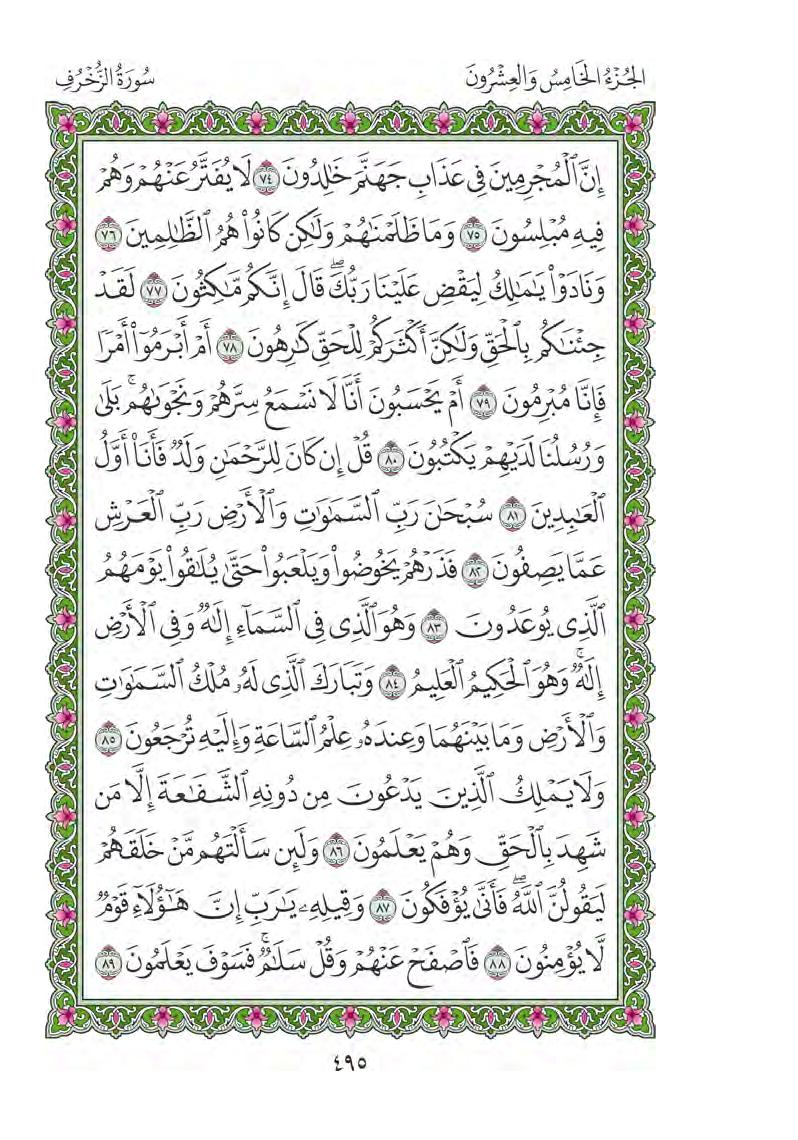 الجُزْءُ الخَامِسُ وَالعِشْرُونَ
سُورَةُ الزُّخْرُفِ
إِنَّ ٱلْمُجْرِمِينَ فِى عَذَابِ جَهَنَّمَ خَٰلِدُونَ ٧٤ لَا يُفَتَّرُ عَنْهُمْ وَهُمْ
فِيهِ مُبْلِسُونَ ٧٥ وَمَا ظَلَمْنَٰهُمْ وَلَٰكِن كَانُوا۟ هُمُ ٱلظَّٰلِمِينَ ٧٦
وَنَادَوْا۟ يَٰمَٰلِكُ لِيَقْضِ عَلَيْنَا رَبُّكَ ۖ قَالَ إِنَّكُم مَّٰكِثُونَ ٧٧ لَقَدْ
جِئْنَٰكُم بِٱلْحَقِّ وَلَٰكِنَّ أَكْثَرَكُمْ لِلْحَقِّ كَٰرِهُونَ ٧٨ أَمْ أَبْرَمُوٓا۟ أَمْرًا
فَإِنَّا مُبْرِمُونَ ٧٩ أَمْ يَحْسَبُونَ أَنَّا لَا نَسْمَعُ سِرَّهُمْ وَنَجْوَىٰهُم ۚ بَلَىٰ
وَرُسُلُنَا لَدَيْهِمْ يَكْتُبُونَ ٨٠ قُلْ إِن كَانَ لِلرَّحْمَٰنِ وَلَدٌ فَأَنَا۠ أَوَّلُ
ٱلْعَٰبِدِينَ ٨١ سُبْحَٰنَ رَبِّ ٱلسَّمَٰوَٰتِ وَٱلْأَرْضِ رَبِّ ٱلْعَرْشِ
عَمَّا يَصِفُونَ ٨٢ فَذَرْهُمْ يَخُوضُوا۟ وَيَلْعَبُوا۟ حَتَّىٰ يُلَٰقُوا۟ يَوْمَهُمُ
ٱلَّذِى يُوعَدُونَ ٨٣ وَهُوَ ٱلَّذِى فِى ٱلسَّمَآءِ إِلَٰهٌ وَفِى ٱلْأَرْضِ
إِلَٰهٌ ۚ وَهُوَ ٱلْحَكِيمُ ٱلْعَلِيمُ ٨٤ وَتَبَارَكَ ٱلَّذِى لَهُۥ مُلْكُ ٱلسَّمَٰوَٰتِ
وَٱلْأَرْضِ وَمَا بَيْنَهُمَا وَعِندَهُۥ عِلْمُ ٱلسَّاعَةِ وَإِلَيْهِ تُرْجَعُونَ ٨٥
وَلَا يَمْلِكُ ٱلَّذِينَ يَدْعُونَ مِن دُونِهِ ٱلشَّفَٰعَةَ إِلَّا مَن
شَهِدَ بِٱلْحَقِّ وَهُمْ يَعْلَمُونَ ٨٦ وَلَئِن سَأَلْتَهُم مَّنْ خَلَقَهُمْ
لَيَقُولُنَّ ٱللَّهُ ۖ فَأَنَّىٰ يُؤْفَكُونَ ٨٧ وَقِيلِهِۦ يَٰرَبِّ إِنَّ هَٰٓؤُلَآءِ قَوْمٌ
لَّا يُؤْمِنُونَ ٨٨ فَٱصْفَحْ عَنْهُمْ وَقُلْ سَلَٰمٌ ۚ فَسَوْفَ يَعْلَمُونَ ٨٩
٤٩٥